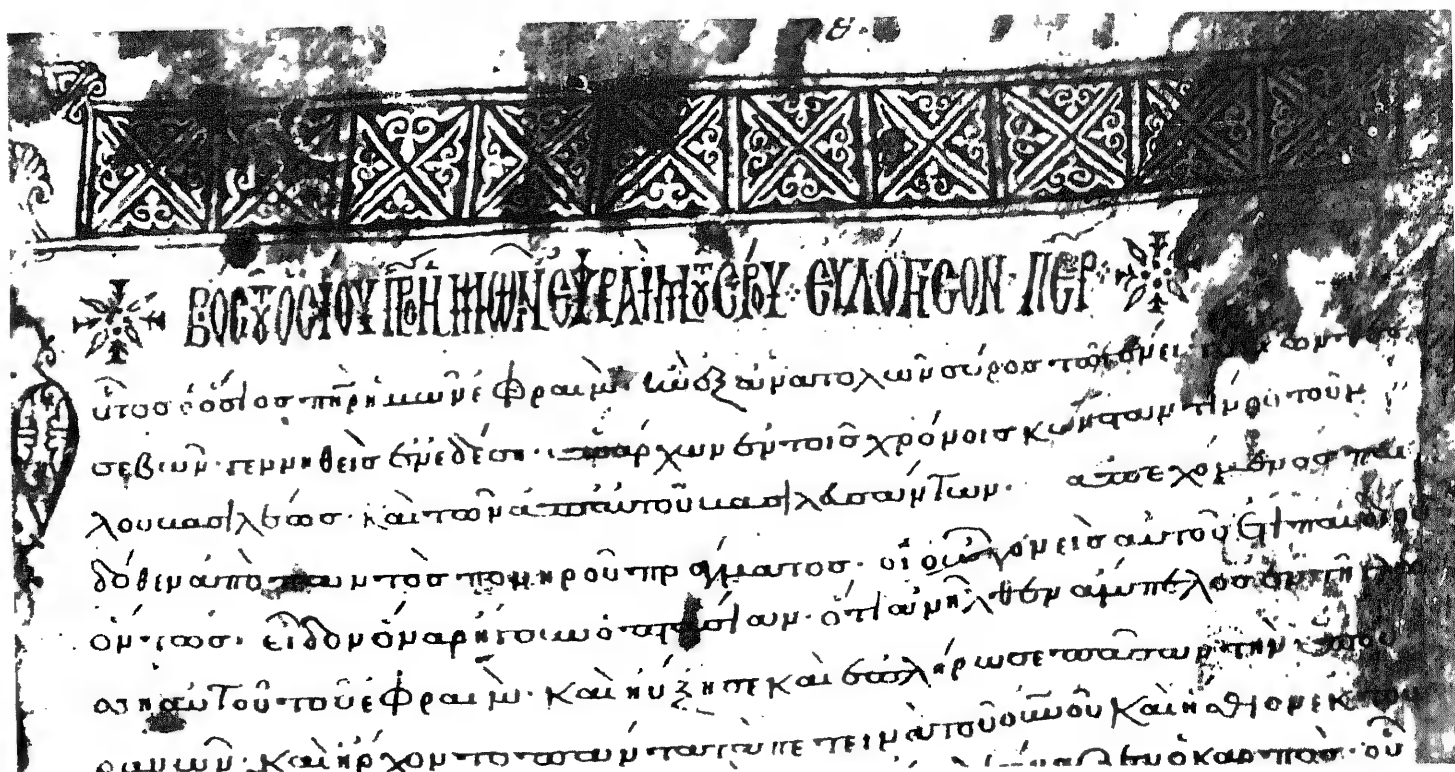 ΒΟΣ ΤΟΥ ΟΣΙΟΥ ΠΡΣ ΗΜΩΝ ΕΦΡΑΙΜ ΤΟΥ ΣΥΡΟΥ · ΕΥΛΟΓΗΣΟΝ · ΠΕΡ
οὗτος ὁ ὅσιος πὴρ ἡμῶν ἐφραὶμ ἐξ ἀνατολῶν σύρος τῶ γένει
σεβῶν · γεννηθεὶς ἐν ἐδέση · ὑπάρχων ἐν τοῖς χρόνοις κωνσταντίνου τοῦ μ
λου βασιλέως · καὶ τῶν ἀπ αὐτοῦ βασιλευσάντων · ἀπεχόμενος παι
δόθεν ἀπὸ παντὸς πονηροῦ πράγματος · οἱ γονεῖς αὐτοῦ ἔτι παιδίου
ὄντος · εἶδον ὄναρ ἤτοι ὀπτασίαν · ὅτι ἀνῆλθεν ἄμπελος ἐν τῇ γλώσ
αὐτοῦ τοῦ ἐφραὶμ · καὶ ηὔξησε καὶ ἐπλήρωσε πᾶσαν τὴν ὑπ οὐ
ρανῶν · καὶ ἤρχοντο πάντα τὰ πετεινὰ τοῦ οὐνοῦ καὶ ἤσθιον ἐκ τοῦ
καρποῦ